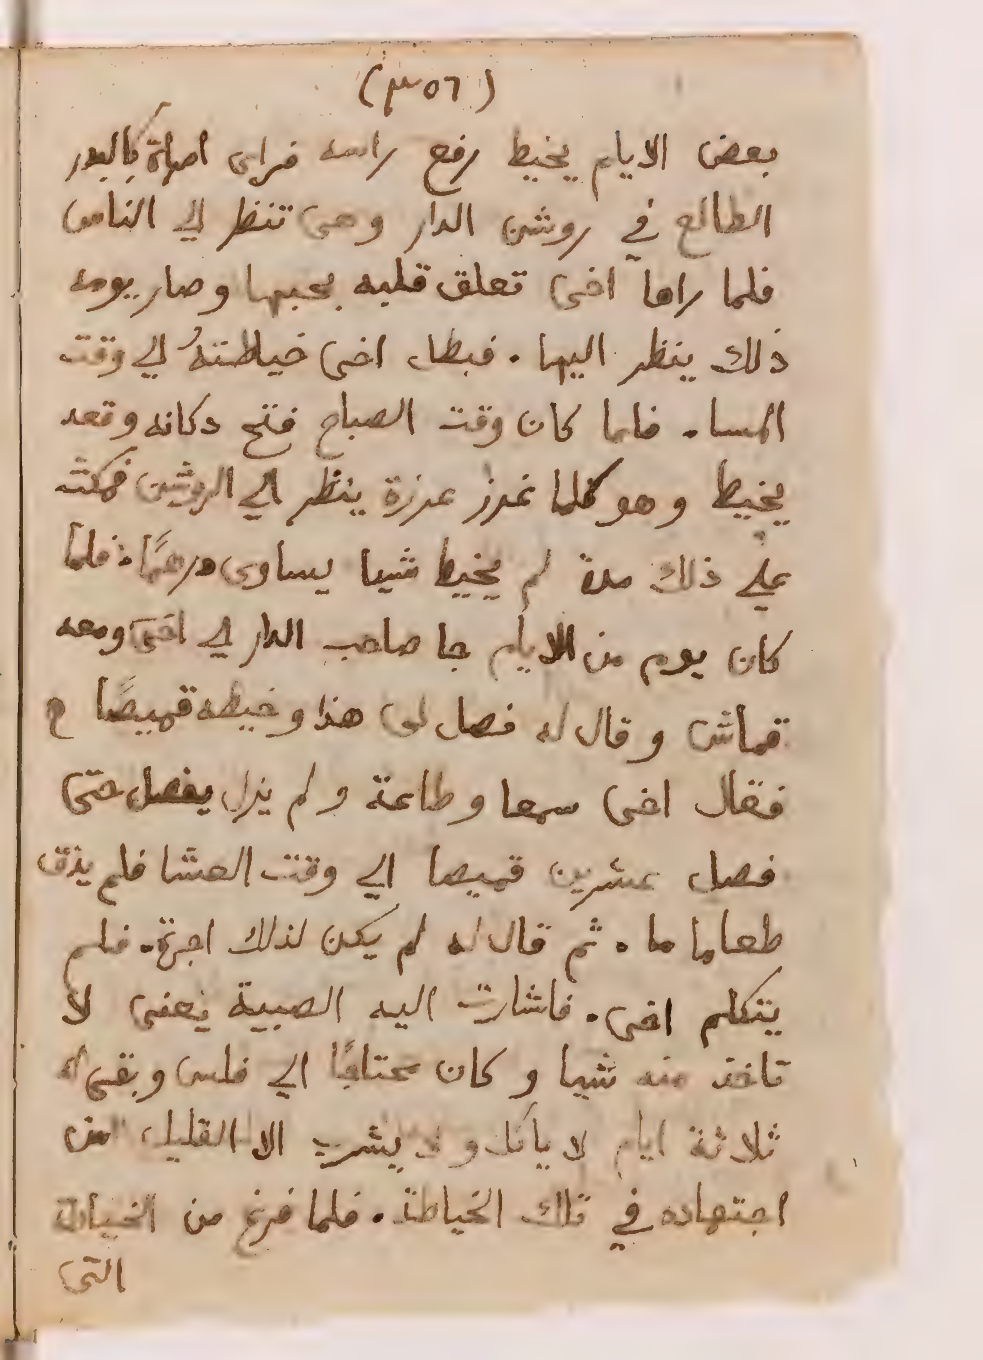 (٣٥٦)
بعض الايام يخيط رفع راسه فراى امراة كالبدر
الطالع في روشن الدار وهى تنظر الي الناس
فلما راها اخى تعلق قلبه بحبها وصار يومه
ذلك ينظر اليها . فبطل اخى خياطتهُ الي وقت
المسا . فلما كان وقت الصباح فتح دكانه وقعد
يخيط وهو كلما غرز غرزة ينظر الي الروشن فمكث
علي ذلك مدة لم يخيط شيا يساوى درهمًا . فلما
كان يوم من الايام جا صاحب الدار الي اخى ومعه
قماش وقال له فصل لى هذا وخيطه قميصًا
فقال اخى سمعا وطاعة ولم يزل يفصل حتى
فصل عشرين قميصا الي وقت العشا فلم يذق
طعاما ما . ثم قال له لم يكن لذلك اجرة . فلم
يتكلم اخى . فاشارت اليه الصبية يعنى لا
تاخذ منه شيا وكان محتاجًا الي فلس وبقى له
ثلاثة ايام لا ياكل ولا يشرب الا القليل من
اجتهاده في تلك الخياطة . فلما فرغ من الخياطة
التى